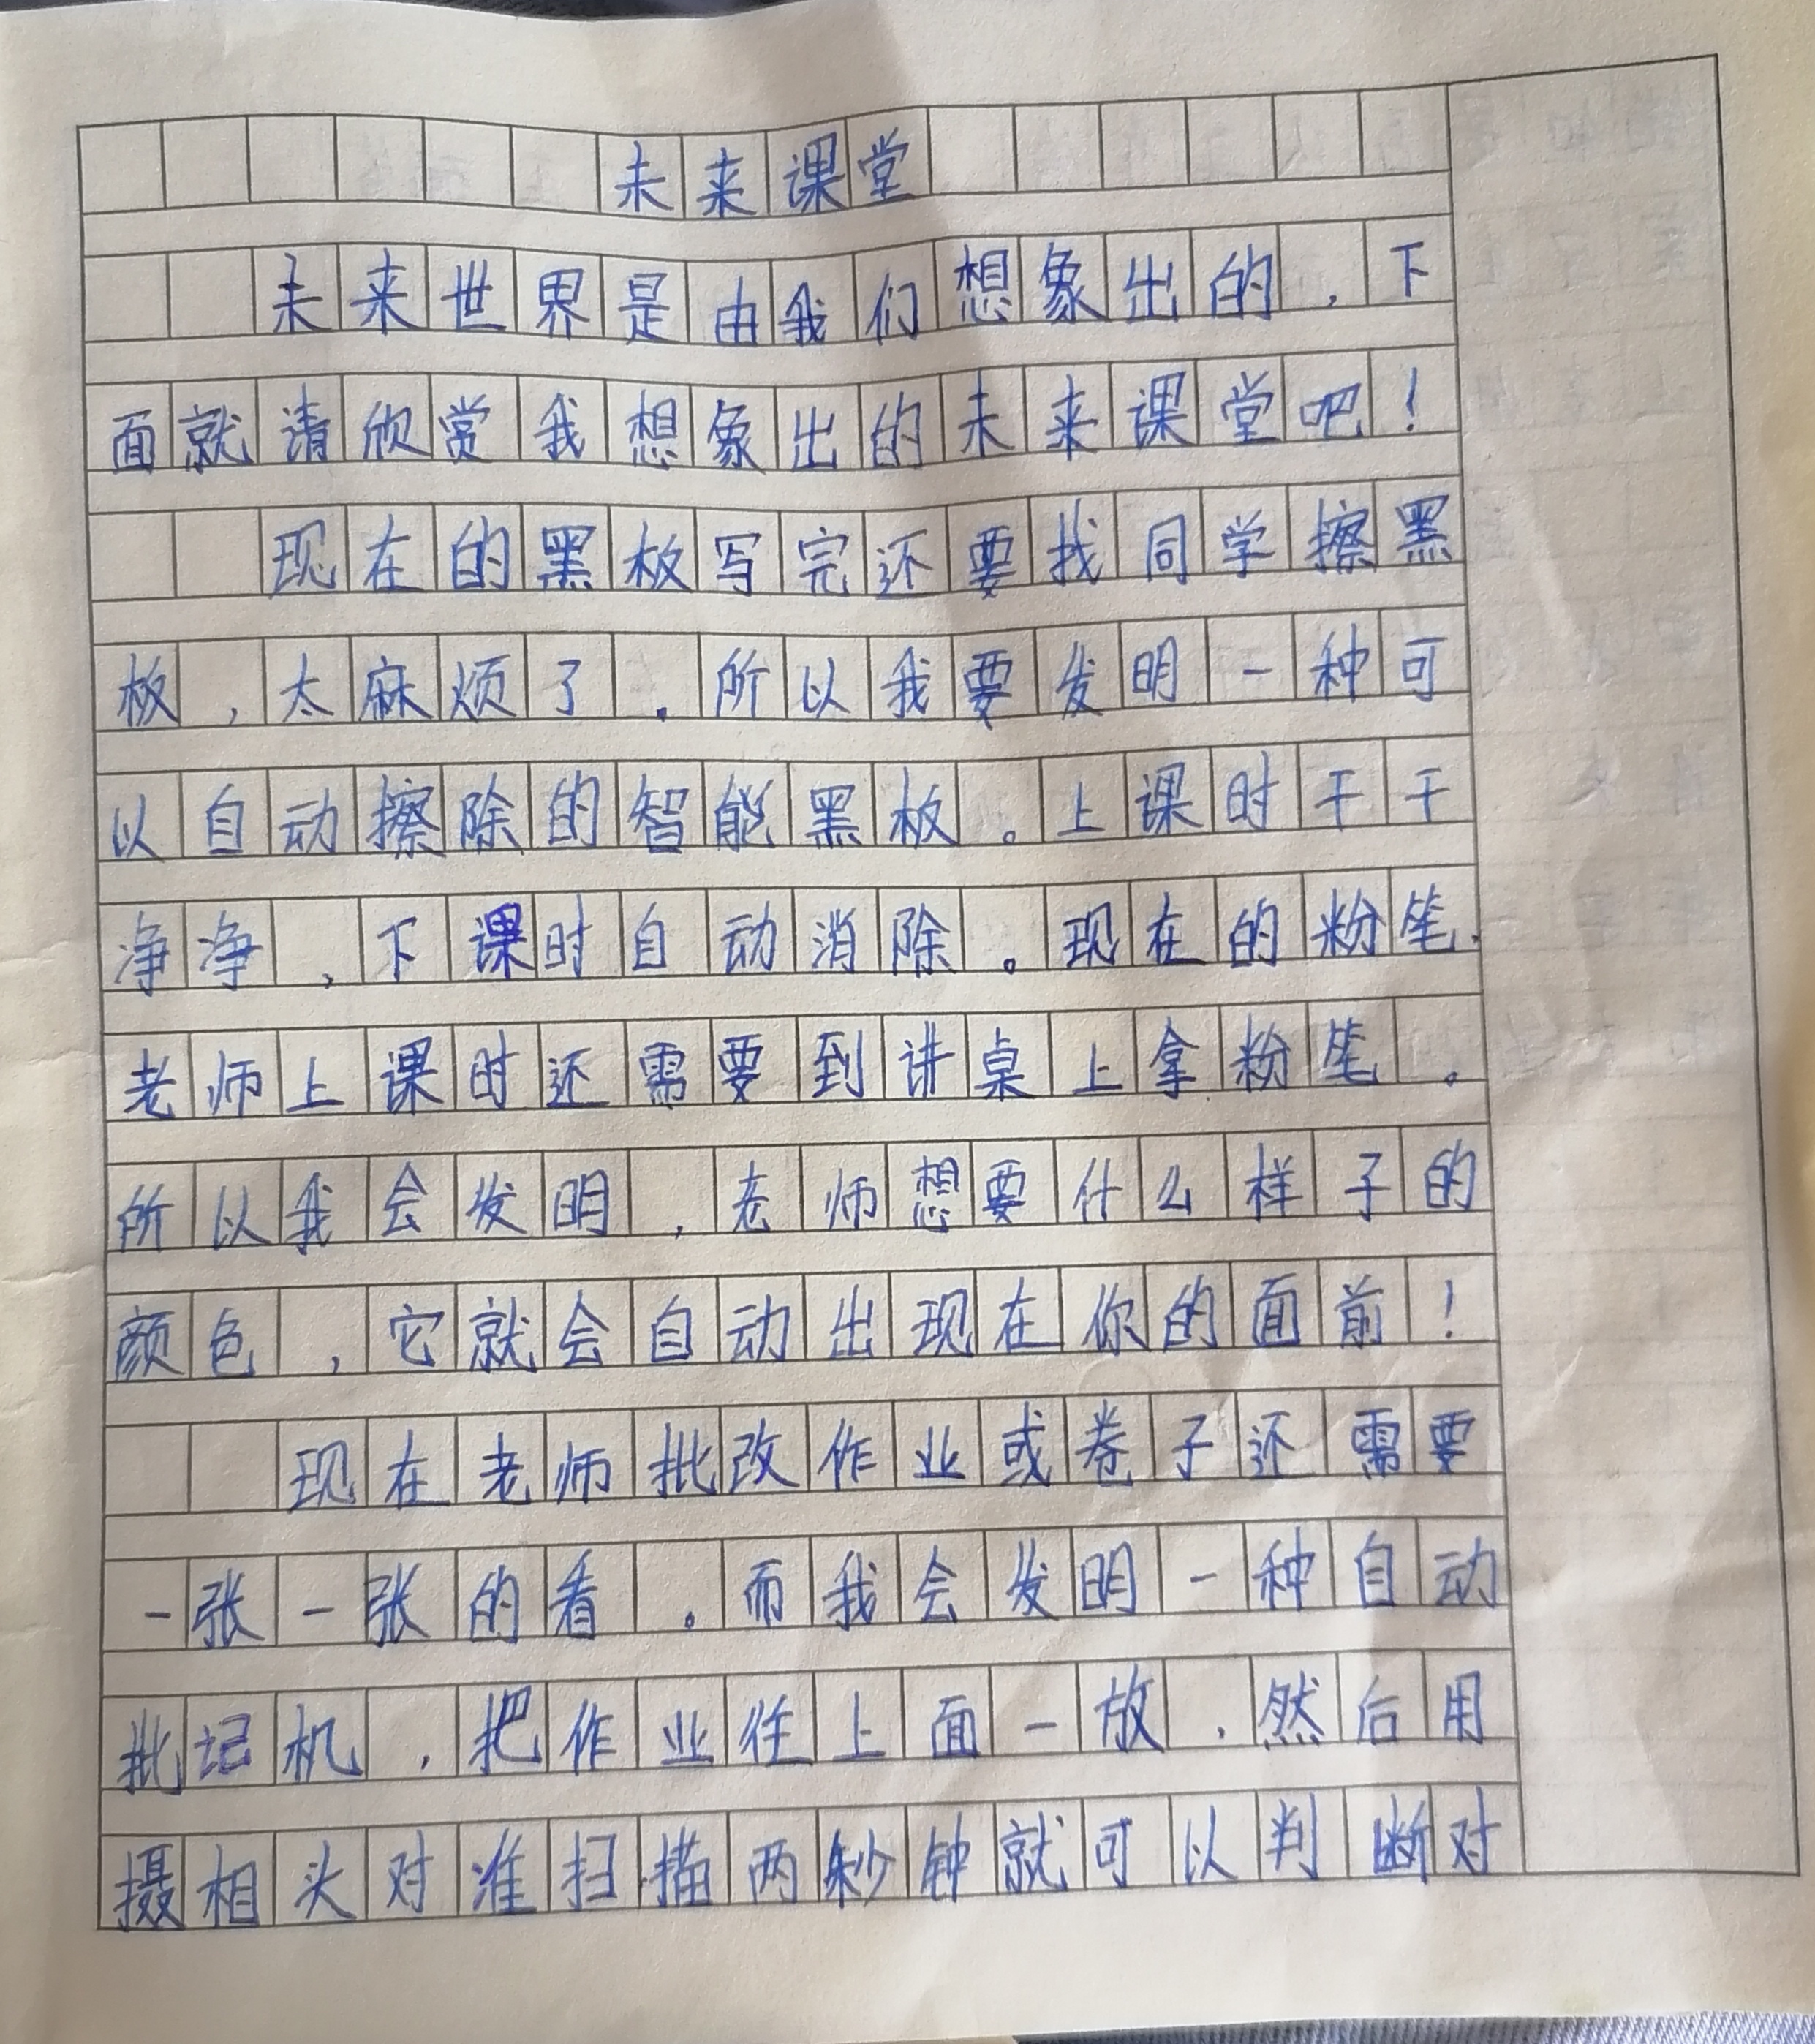 未来课堂
未来世界是由我们想象出的,下
面就请欣赏我想象出的未来课堂吧!
现在的黑板写完还要找同学擦黑
板,太麻烦了.所以我要发明一种可
以自动擦除的智能黑板。上课时干干
净净,下课时自动消除。现在的粉笔,
老师上课时还需要到讲桌上拿粉笔。
所以我会发明,老师想要什么样子的
颜色,它就会自动出现在你的面前!
现在老师批改作业或卷子还需要
一张一张的看。而我会发明一种自动
批记机,把作业往上面一放,然后用
摄相头对准扫描两秒钟就可以判断对